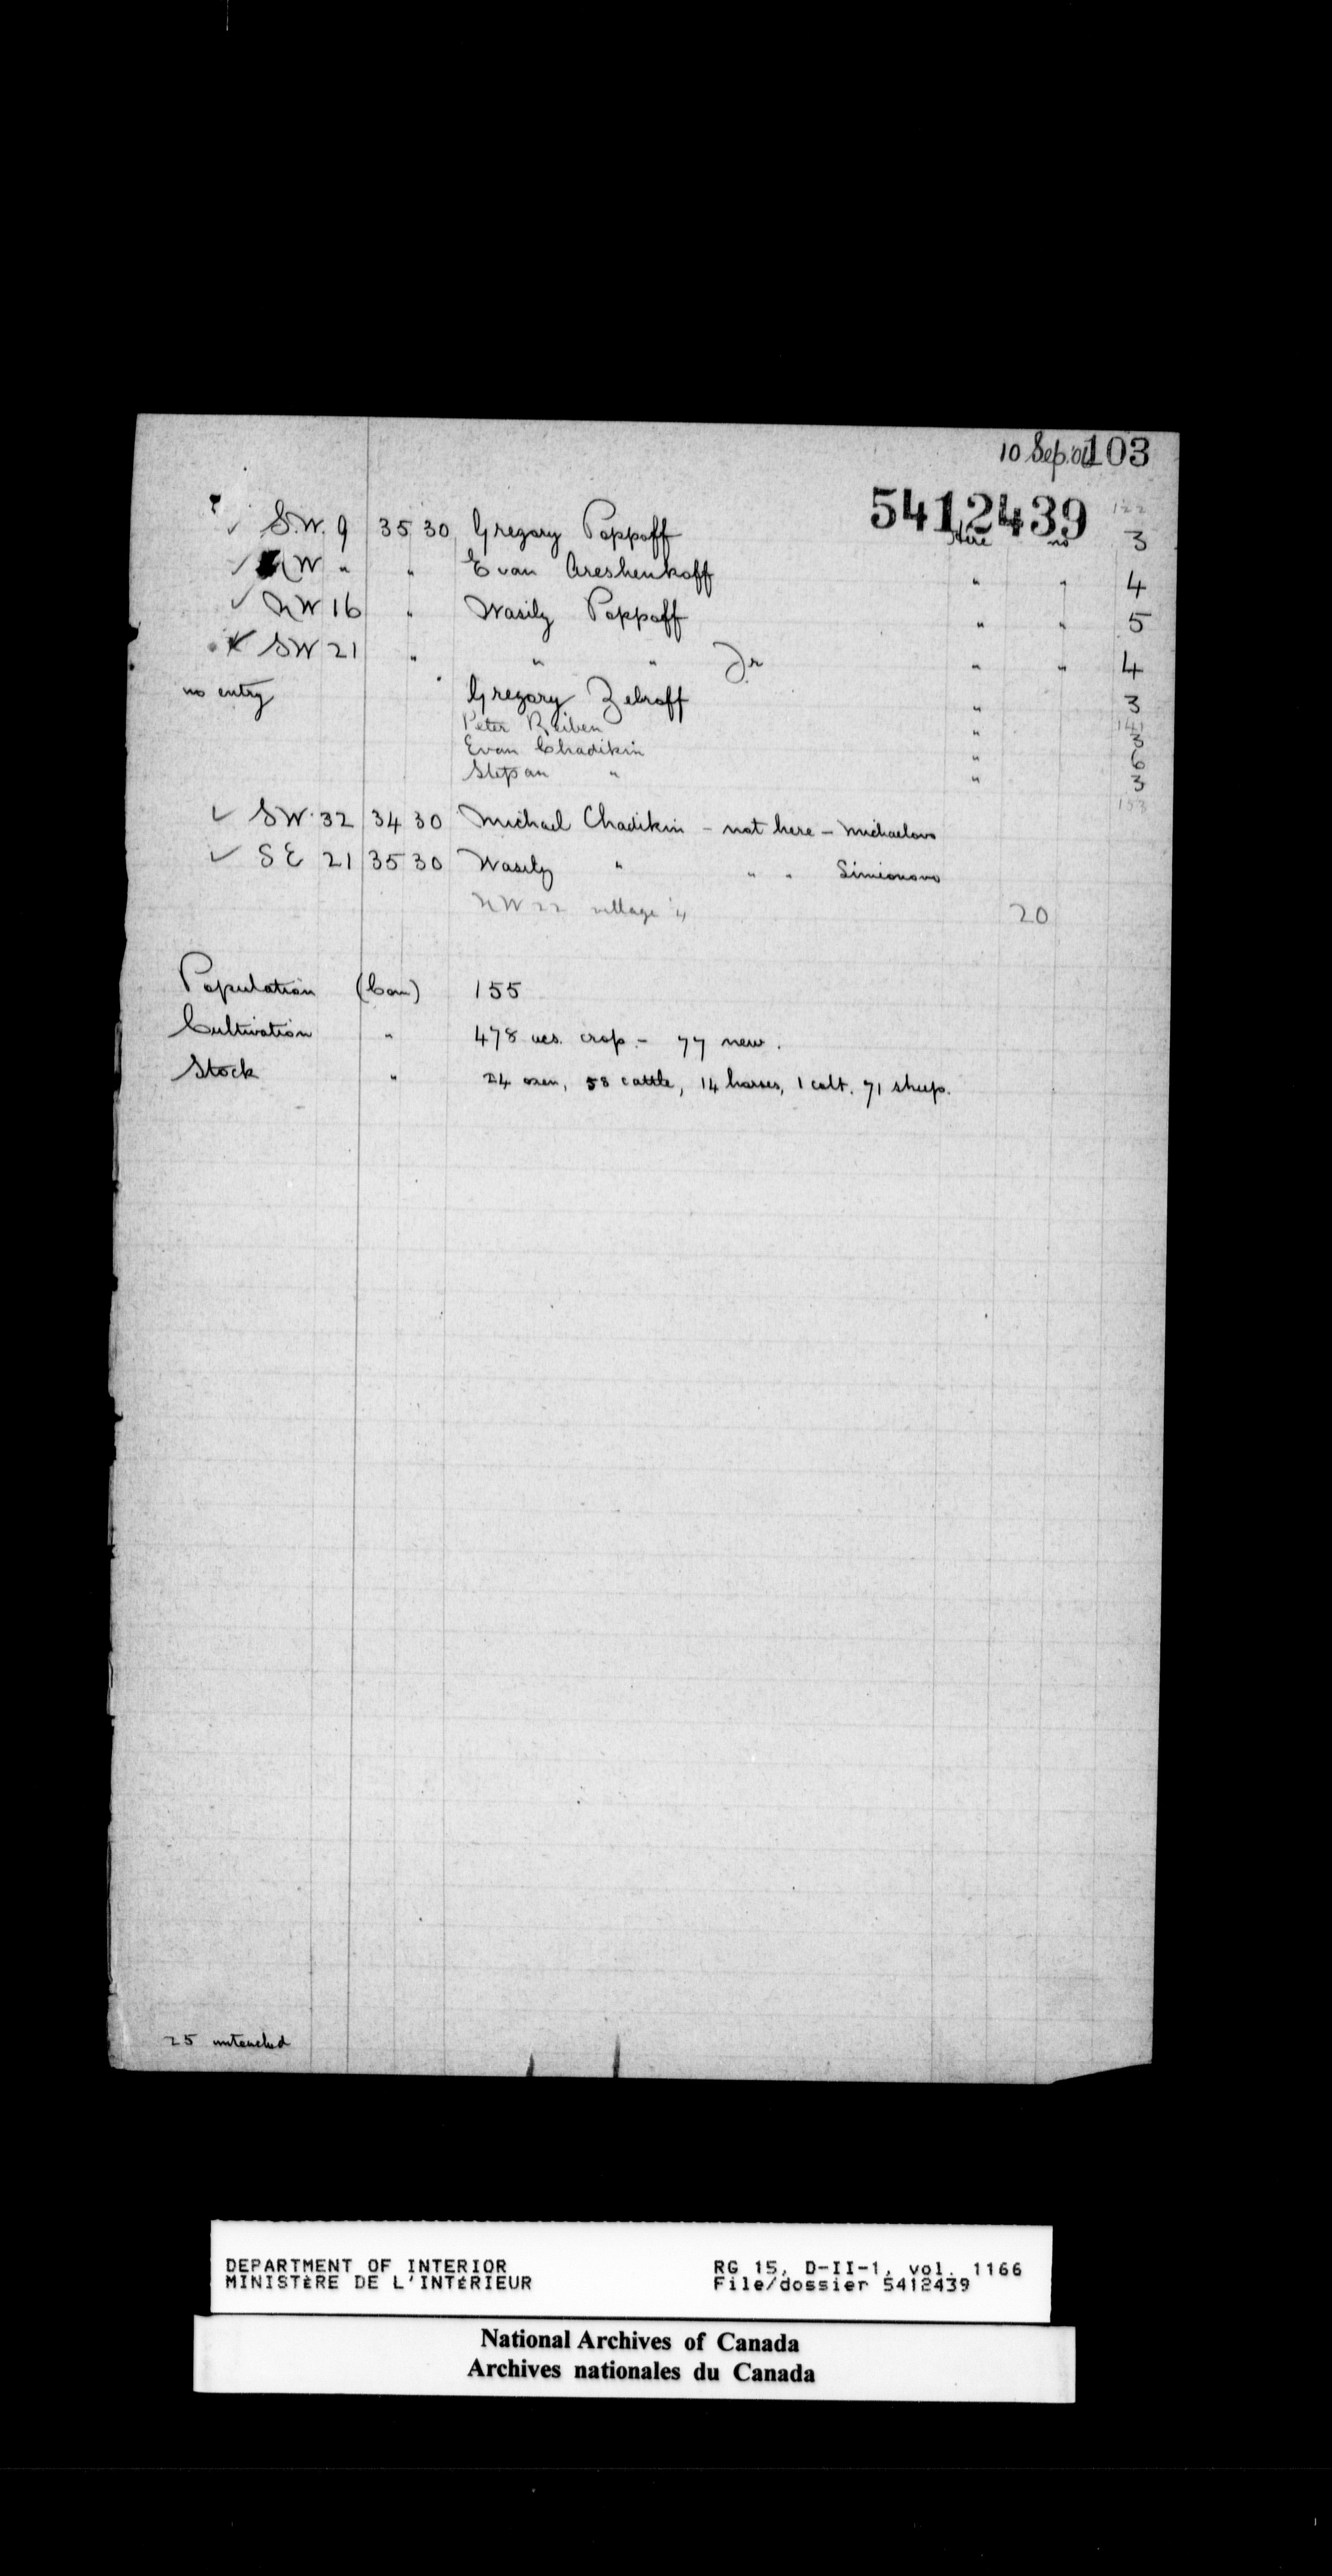 10 Sep. 103
5412439
122
? ✓ S.W. 9 35 30 Gregory Poppoff here no 3
✓ NW " " Evan Areshenkoff " " 4
✓ NW 16 " Wasily Poppoff " " 5
✓ SW 21 " " " Jr " " 4
no entry Gregory Zebroff " 3
141
Peter Reiben " 3
Evan Chadikin " 6
Stepan " " 3
153
✓ SW 32 34 30 Michael Chadikin - not here - Michaelovo
✓ SE 21 35 30 Wasily " " " Simeonovo
NW 22 village 20
Population (Com) 155
Cultivation " 478 acs. crop - 77 new.
Stock " 24 oxen, 58 cattle, 14 horses, 1 colt. 71 sheep.
25 untouched
DEPARTMENT OF INTERIOR RG 15, D-II-1, vol. 1166
MINISTÈRE DE L'INTÉRIEUR File/dossier 5412439
National Archives of Canada
Archives nationales du Canada